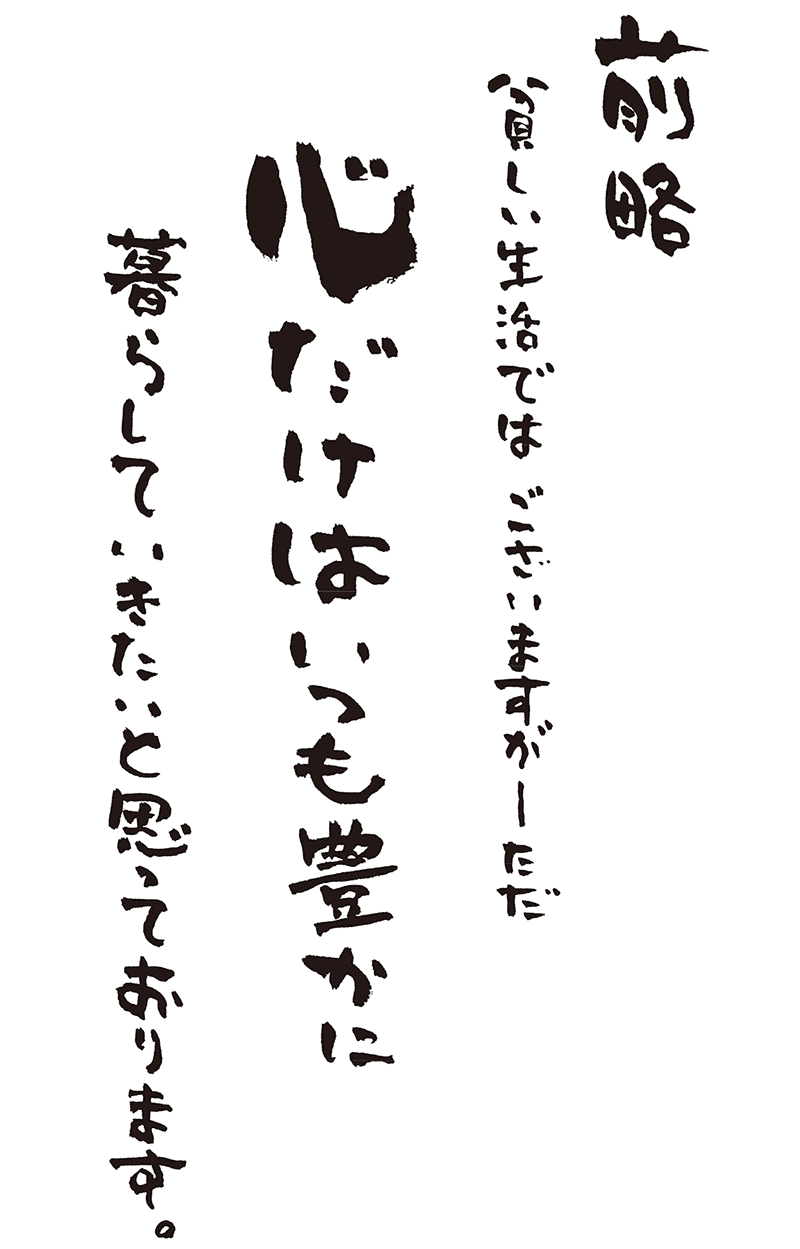 前略
貧しい生活ではございますがーただ
心だけはいつも豊かに
暮らしていきたいと思っております。